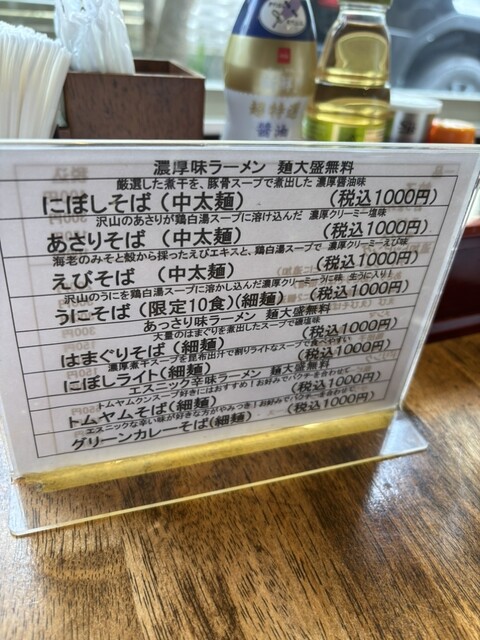 特選
醤油
濃厚味ラーメン 麺大盛無料
厳選した煮干を、豚骨スープで煮出した 濃厚醤油味
にぼしそば（中太麺） （税込1000円）
沢山のあさりが鶏白湯スープに溶け込んだ 濃厚クリーミー塩味
あさりそば（中太麺） （税込1000円）
海老のみそと殻から採ったえびエキスと、鶏白湯スープで 濃厚クリーミーえび味
えびそば （中太麺） （税込1000円）
沢山のうにを鶏白湯スープに溶かし込んだ濃厚クリーミーうに味 生うに入り！
うにそば（限定10食）（細麺） （税込1000円）
あっさり味ラーメン 麺大盛無料
大量のはまぐりを煮出したスープで磯塩味
はまぐりそば（細麺） （税込1000円）
濃厚煮干スープを昆布出汁で割りライトなスープで食べやすい
にぼしライト（細麺） （税込1000円）
エスニック辛味ラーメン 麺大盛無料
トムヤムクンスープ好きにはおすすめ！お好みでパクチーを合わせて
トムヤムそば（細麺） （税込1000円）
エスニックな辛い味が好きな方がやみつき！お好みでパクチーを合わせて
グリーンカレーそば（細麺） （税込1000円）